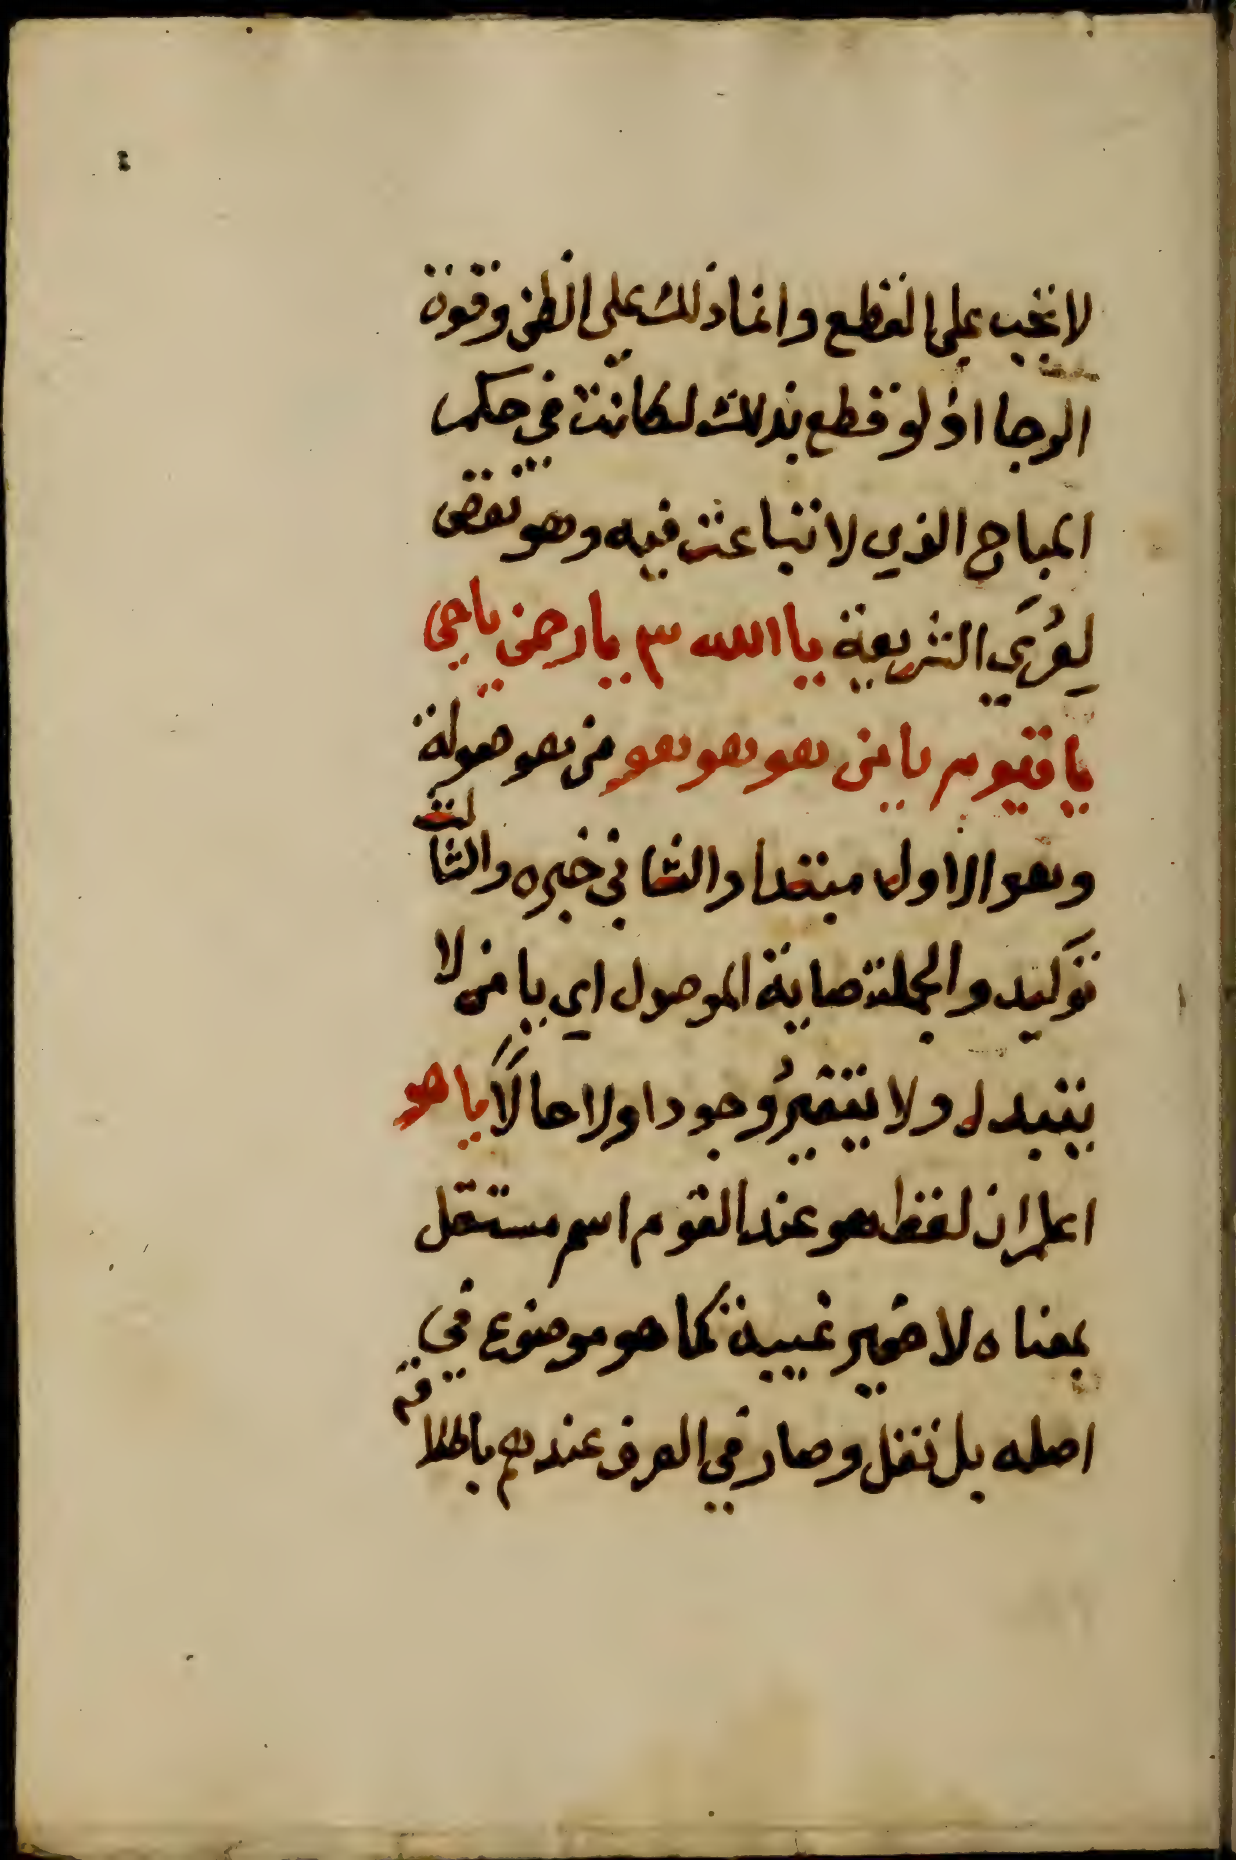 ٤
لا تجب على القطع وانما ذلك على الظن وقوة
الرجا اذ لو قطع بذلك لكانت في حكم
المباح الذي لا تباعث فيه وهو نقض
لعُرَي الشريعة يا الله ٣ يا رحمن يا حي
يا قيوم يا من هو هو هو من هو موصولة
وهو الاول مبتدا والثاني خبره والثالث
توكيد والجملة صلة الموصول اي يا من لا
يتبدل ولا يتغير وجودا ولا حالًا يا هو
اعلم ان لفظ هو عند القوم اسم مستقل
بمعناه لا ضمير غيبة كما هو موضوع في
اصله بل نقل وصار في العرف عندهم باطلاقه